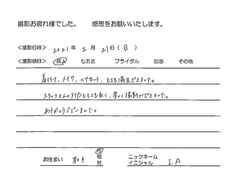 撮影お疲れ様でした。 感想をお願いいたします。
<撮影日時> 2021年 2月 21日(日)
<撮影項目> 成人 七五三 ブライダル 記念 その他
着付け、メイク、ヘアセット、とても満足できました。
スタッフさんの対応もとても良く、楽しく撮影ができました。
ありがとうございました。
お住まい 市 ニックネーム
イニシャル I.A